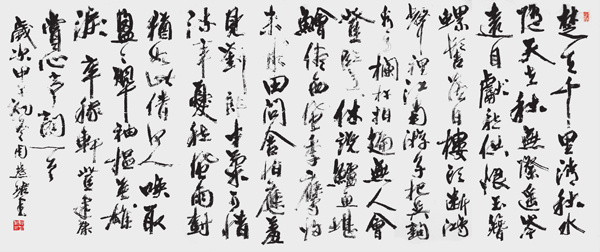 楚天千里清秋水
隨天去秋無際遙岑
遠目獻愁供恨玉簪
螺髻落日樓頭斷鴻
聲裡江南游子把吳鉤
看了欄杆拍遍無人會
登臨意休說鱸魚堪
鱠儘西風季鷹歸
未求田問舍怕應羞
見劉郎才氣可惜
流年憂愁風雨樹
猶如此倩何人喚取
盈盈翠袖揾英雄
淚 辛稼軒登建康
賞心亭詞一首
歲次甲午初冬周